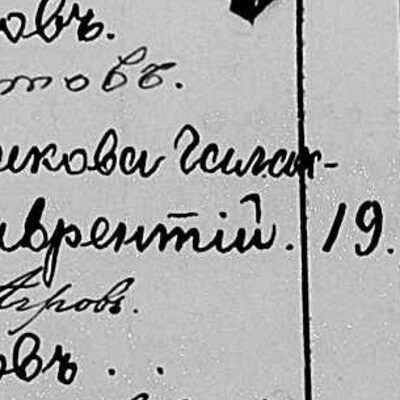 овъ.
товъ.
икова Галак-
аврентій. 19.
тровъ.
овъ . .